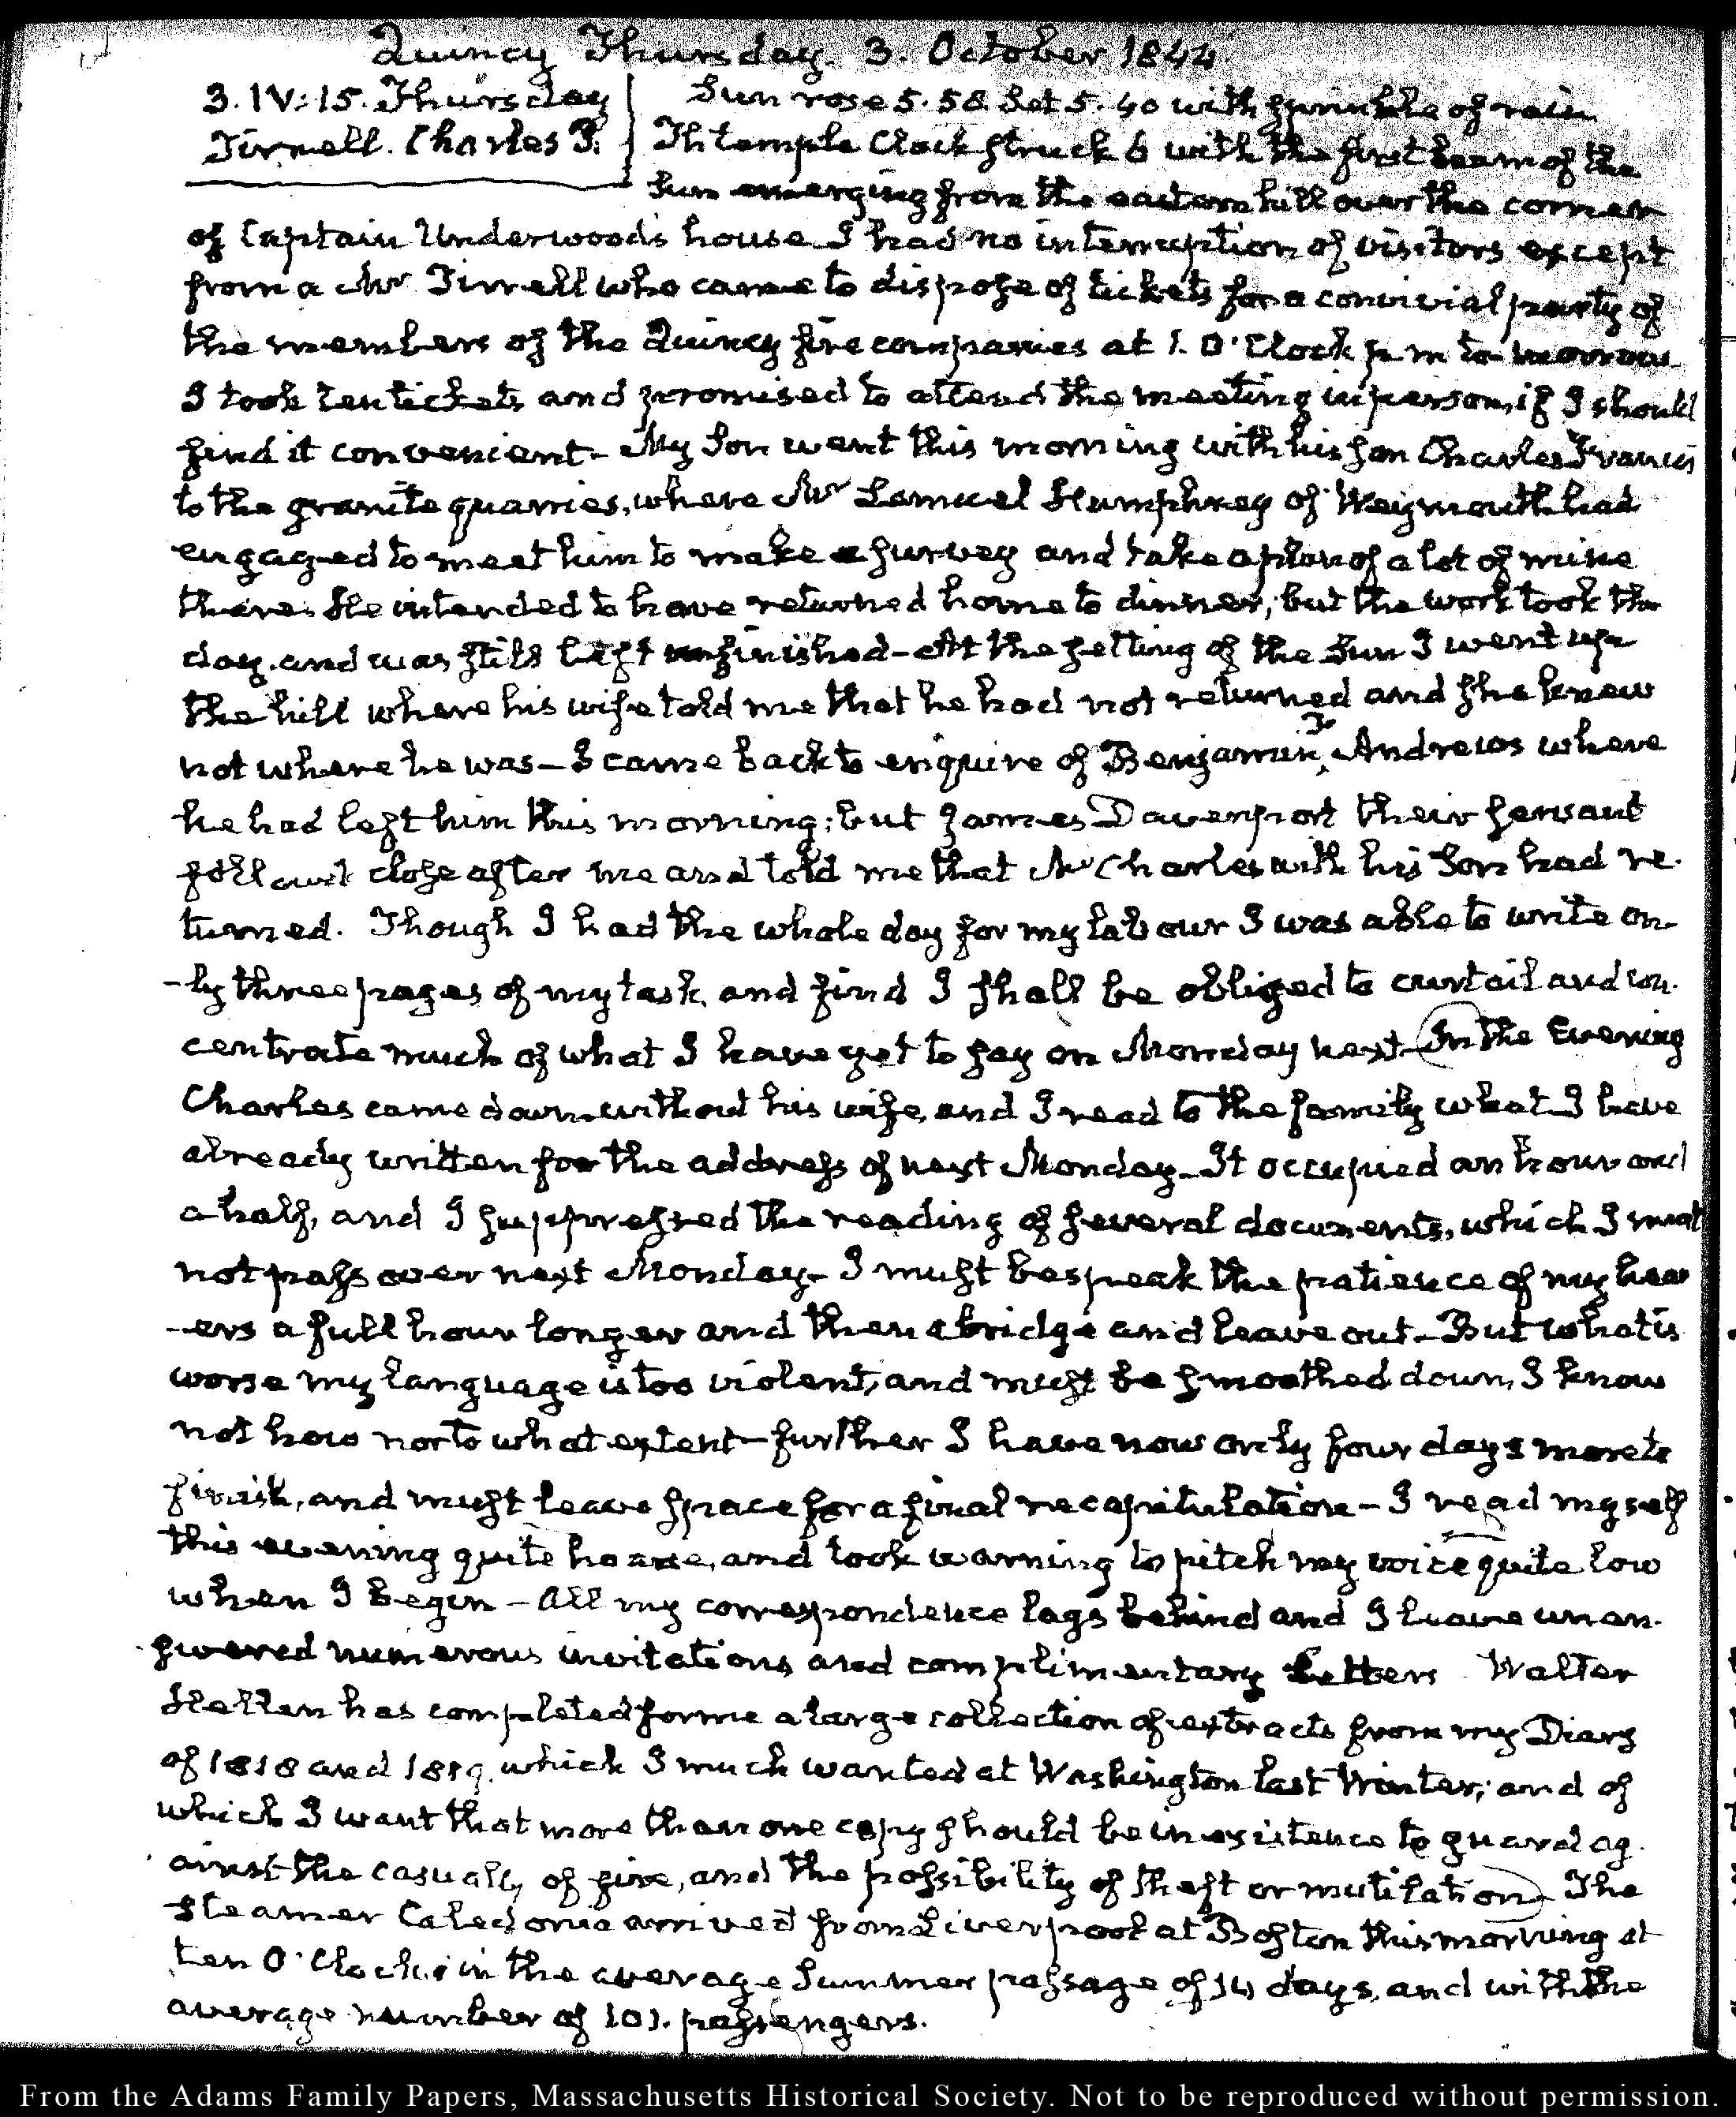 Quincy Thursday. 3. October 1844.
3. IV:15. Thursday
Tirrell. Charles T.
Sun rose 5.58. Set 5.40 with sprinkle of rain
Th temple Clock struck 6 with the first beam of the
Sun emerging from the eastern hill over the corner
of Captain Underwood's house. I had no interruption of visitors except
from a Mr Tirrell who came to dispose of tickets for a convivial party of
the members of the Quincy fire companies at 1. O'Clock p.m to-morrow
I took ten tickets and promised to attend the meeting in person, if I should
find it convenient- My Son went this morning with his son Charles Francis
to the granite quarries, where Mr Lemuel Humphrey of Weymouth had
engaged to meet him to make a survey and take a plan of a lot of mine
there. He intended to have returned home to dinner, but the work took the
day. and was still left unfinished- At the setting of the Sun I went up
the hill where his wife told me that he had not returned and she knew
not where he was- I came back to enquire of Benjamin Jr Andrews where
he had left him this morning; but James Davenport their servant
followed close after me and told me that Mr Charles with his Son had re-
turned. Though I had the whole day for my labour I was able to write on-
-ly three pages of my task, and find I shall be obliged to curtail and con-
centrate much of what I have yet to say on Monday next- In the Evening
Charles came down without his wife, and I read to the family what I have
already written for the address of next Monday- It occupied an hour and
a half, and I suppressed the reading of several documents, which I must
not pass over next Monday- I must bespeak the patience of my hear
-ers a full hour longer and then abridge and leave out- But what is
worse my language is too violent, and must be smoothed down, I know
not how nor to what extent- further I have now only four days more to
finish, and must leave space for a final recapitulation- I read myself
this evening quite hoarse, and took warning to pitch my voice quite low
when I begin- All my correspondence lags behind and I leave unan-
swered numerous invitations and complimentary letters Walter
Hellen has completed for me a large collection of extracts from my Diary
of 1818 and 1819. which I much wanted at Washington last Winter; and of
which I want that more than one copy should be in existence to guard ag-
ainst the casualty of fire, and the possibility of theft or mutilation- The
steamer Caledonia arrived from Liverpool at Boston this morning at
ten O'Clock. in the average Summer passage of 14 days, and with the
average number of 101. passengers.
From the Adams Family Papers, Massachusetts Historical Society. Not to be reproduced without permission.